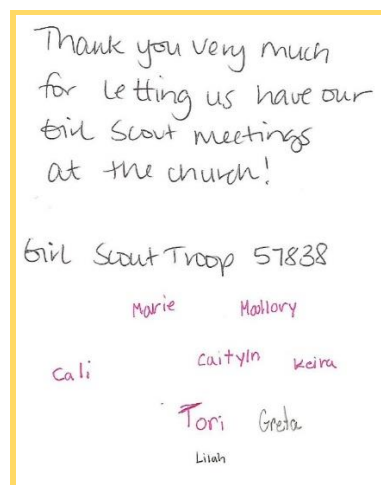 Thank you very much
for letting us have our
Girl Scout meetings
at the church!
Girl Scout Troop 57838
Marie Mallory
Cali Caityln Keira
Tori Greta
Lilah